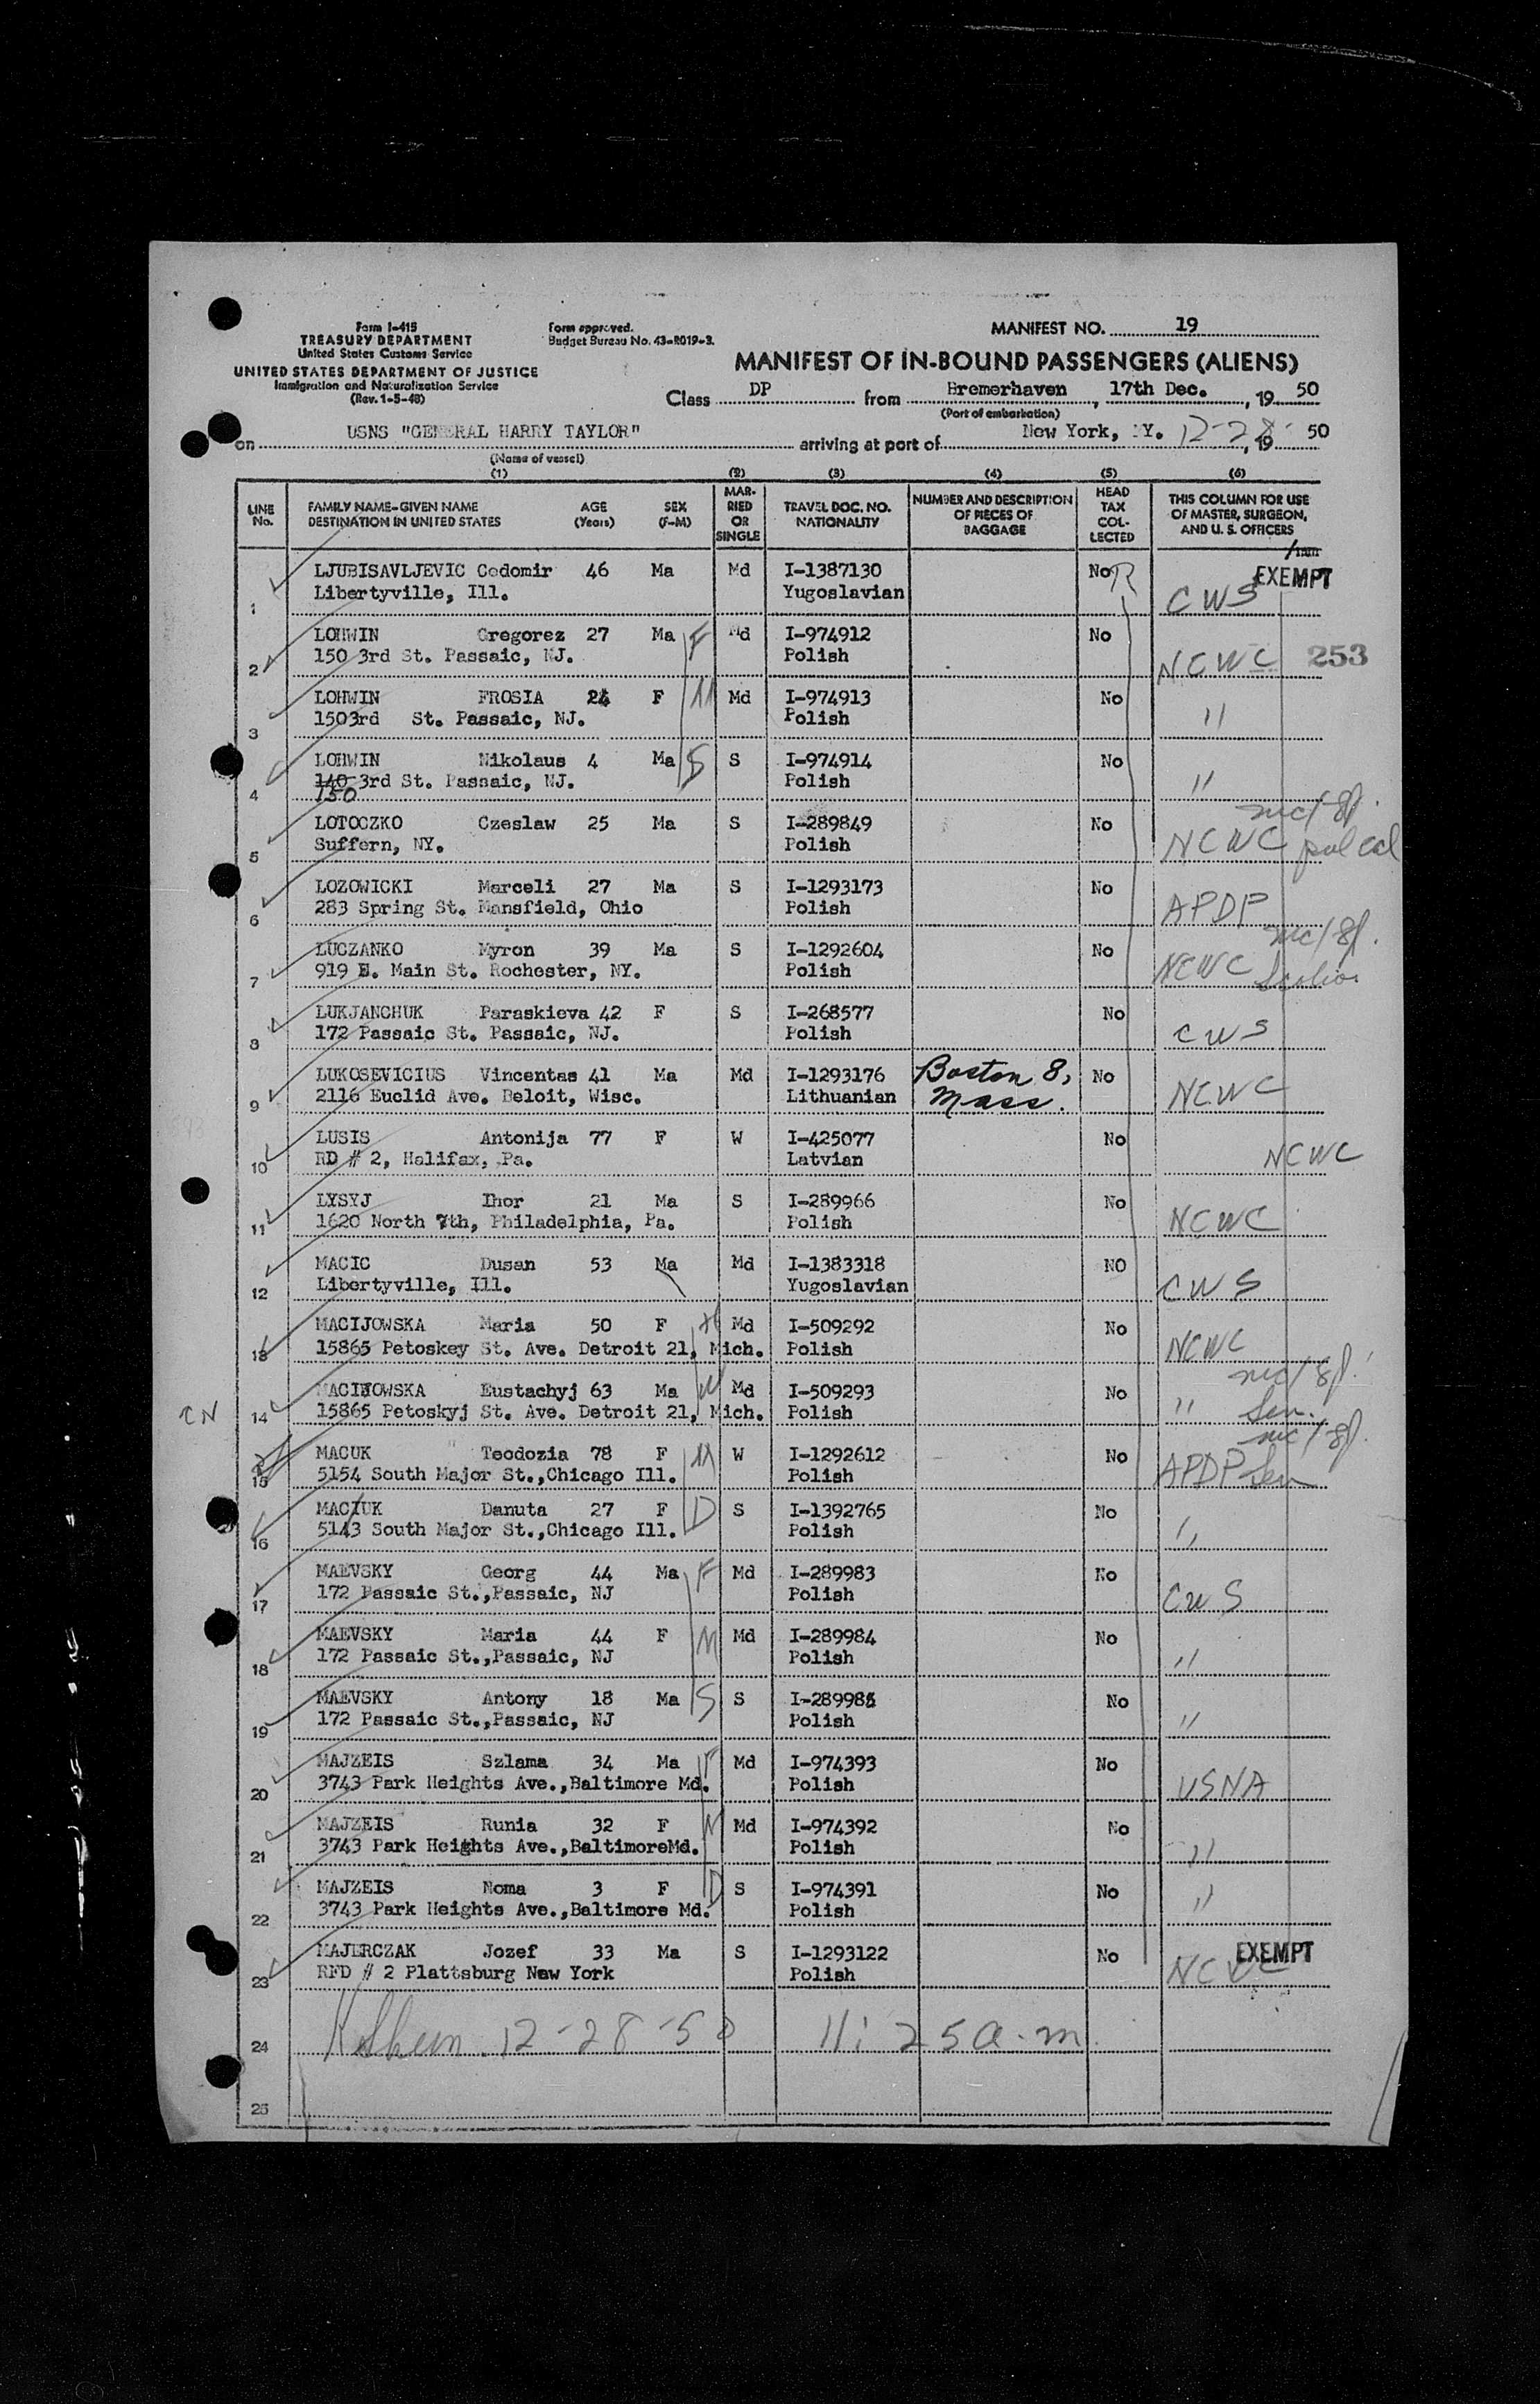 Form I-415
TREASURY DEPARTMENT
United States Customs Service
UNITED STATES DEPARTMENT OF JUSTICE
Immigration and Naturalization Service
(Rev. 1-5-48)
Form approved.
Budget Bureau No. 43-R019-3.
MANIFEST NO. 19
MANIFEST OF IN-BOUND PASSENGERS (ALIENS)
Class DP from Bremerhaven, 17th Dec., 19 50
(Port of embarkation)
on USNS "GENERAL HARRY TAYLOR" arriving at port of New York, NY. 12-28 19 50
(Name of vessel)
(1) (2) (3) (4) (5) (6)
LINE No. FAMILY NAME-GIVEN NAME DESTINATION IN UNITED STATES AGE (Years) SEX (F-M) MARRIED OR SINGLE TRAVEL DOC. NO. NATIONALITY NUMBER AND DESCRIPTION OF PIECES OF BAGGAGE HEAD TAX COLLECTED THIS COLUMN FOR USE OF MASTER, SURGEON, AND U. S. OFFICERS
LJUBISAVLJEVIC Cedomir 46 Ma Md I-1387130 No EXEMPT
1 Libertyville, Ill. Yugoslavian CWS
LOHWIN Gregorez 27 Ma F Md I-974912 No
2 150 3rd St. Passaic, NJ. Polish NCWC 253
LOHWIN FROSIA 24 F M Md I-974913 No
3 1503rd St. Passaic, NJ. Polish "
LOHWIN Nikolaus 4 Ma S S I-974914 No
4 140 3rd St. Passaic, NJ. Polish "
150
LOTOCZKO Czeslaw 25 Ma S I-289849 No
5 Suffern, NY. Polish NCWC pul cal
LOZOWICKI Marceli 27 Ma S I-1293173 No
6 283 Spring St. Mansfield, Ohio Polish APDP
LUCZANKO Myron 39 Ma S I-1292604 No
7 919 E. Main St. Rochester, NY. Polish NCWC
LUKJANCHUK Paraskieva 42 F S I-268577 No
8 172 Passaic St. Passaic, NJ. Polish CWS
LUKOSEVICIUS Vincentas 41 Ma Md I-1293176 Boston 8, No
9 2116 Euclid Ave. Beloit, Wisc. Lithuanian Mass. NCWC
LUSIS Antonija 77 F W I-425077 No
10 RD # 2, Halifax, Pa. Latvian NCWC
LYSYJ Ihor 21 Ma S I-289966 No
11 1620 North 7th, Philadelphia, Pa. Polish NCWC
MACIC Dusan 53 Ma Md I-1383318 NO
12 Libertyville, Ill. Yugoslavian CWS
MACIJOWSKA Maria 50 F Md I-509292 No
13 15865 Petoskey St. Ave. Detroit 21, Mich. Polish NCWC
MACIJOWSKA Eustachyj 63 Ma Md I-509293 No
CN 14 15865 Petoskyj St. Ave. Detroit 21, Mich. Polish " Sen.
MACUK Teodozia 78 F M W I-1292612 No
15 5154 South Major St.,Chicago Ill. Polish APDP Sen
MACIUK Danuta 27 F D S I-1392765 No
16 5143 South Major St.,Chicago Ill. Polish "
MAEVSKY Georg 44 Ma F Md I-289983 No
17 172 Passaic St.,Passaic, NJ Polish CWS
MAEVSKY Maria 44 F M Md I-289984 No
18 172 Passaic St.,Passaic, NJ Polish "
MAEVSKY Antony 18 Ma S S I-289985 No
19 172 Passaic St.,Passaic, NJ Polish "
MAJZEIS Szlama 34 Ma F Md I-974393 No
20 3743 Park Heights Ave.,Baltimore Md. Polish USNA
MAJZEIS Runia 32 F M Md I-974392 No
21 3743 Park Heights Ave.,BaltimoreMd. Polish "
MAJZEIS Noma 3 F D S I-974391 No
22 3743 Park Heights Ave.,Baltimore Md. Polish "
MAJERCZAK Jozef 33 Ma S I-1293122 No EXEMPT
23 RFD # 2 Plattsburg New York Polish NCWC
24 12-28-50 11:25 a.m.
25